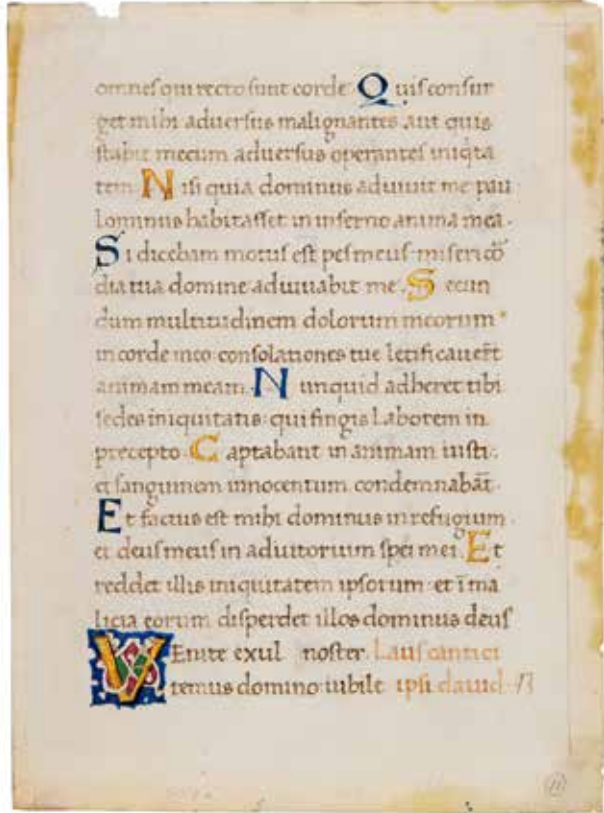 omnes qui recto sunt corde Quis consur
get mihi adversus malignantes aut quis
stabit mecum adversus operantes iniq̃ta
tem Nisi quia dominus adiuvit me pau
lominus habitasset in inferno anima mea.
Si dicebam motus est pes meus misericõ
dia tua domine adiuvabit me. Secun
dum multitudinem dolorum meorum
in corde meo consolationes tue letificaver̃t
animam meam. Nunquid adheret tibi
sedes iniquitatis qui fingis Laborem in
precepto Captabant in animam iusti:
et sanguinem innocentum condemnabãt.
Et factus est mihi dominus in refugium.
et deus meus in adiutorium spei mei. Et
reddet illis iniquitatem ipsorum et ĩ ma
licia eorum disperdet illos dominus deus
VEnite exul noster. Laus cantici
temus domino iubile ipsi david.
11